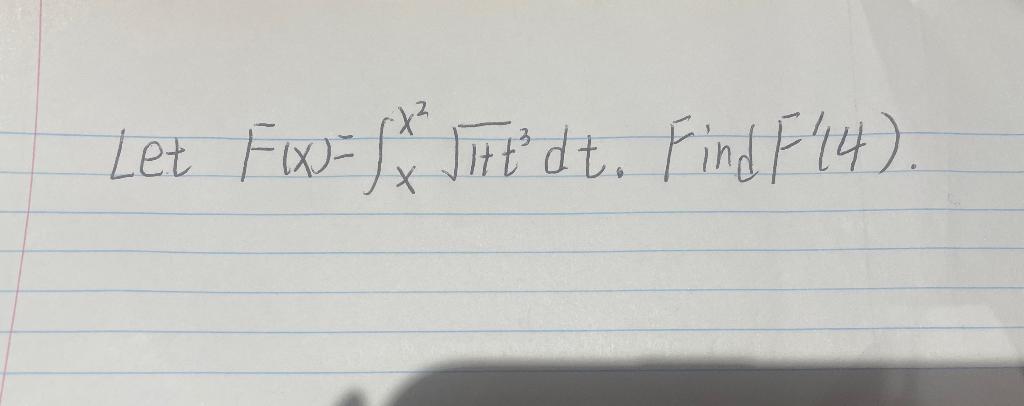 Let F(x)=∫ₓ^x² √(1+t³) dt. Find F'(4).